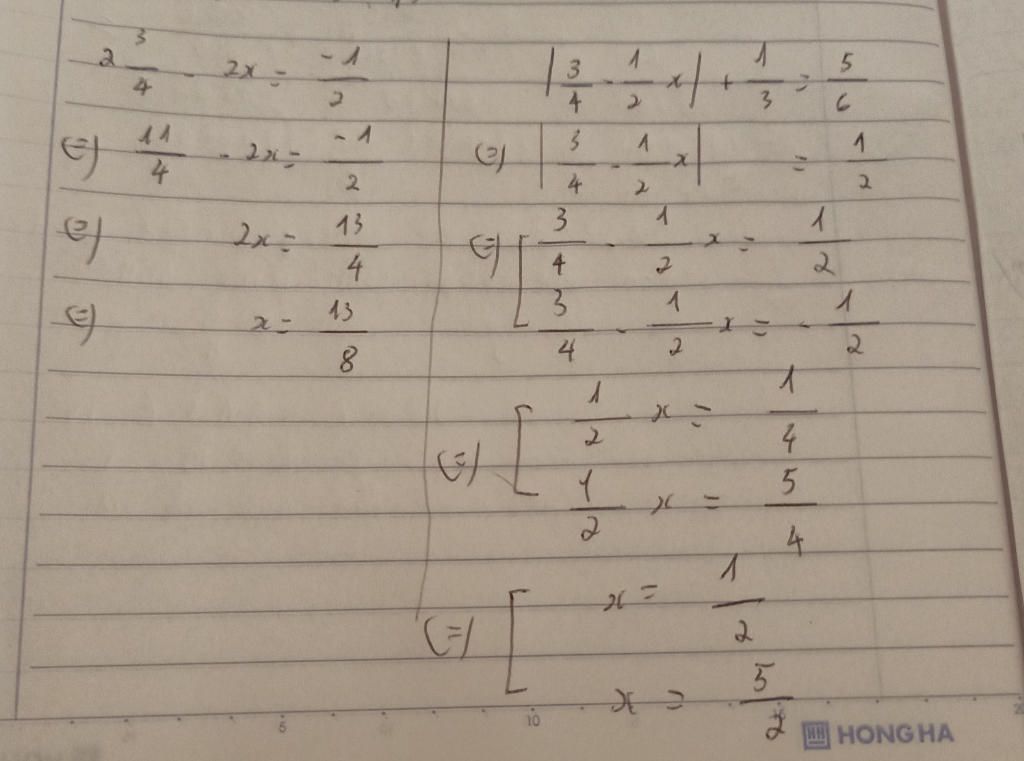 2 3/4 - 2x = -1/2
(=) 11/4 - 2x = -1/2
(=) 2x = 13/4
(=) x = 13/8
|3/4 - 1/2 x| + 1/3 = 5/6
(=) |3/4 - 1/2 x| = 1/2
(=) [ 3/4 - 1/2 x = 1/2
3/4 - 1/2 x = - 1/2
(=) [ 1/2 x = 1/4
1/2 x = 5/4
(=) [ x = 1/2
x = 5/2
5 10
HONG HA